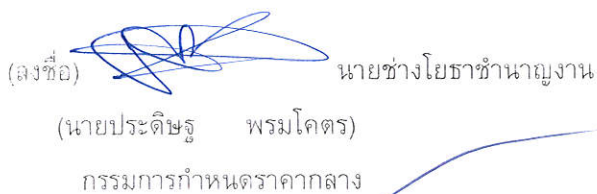 (ลงชื่อ) นายช่างโยธาชำนาญงาน
(นายประดิษฐ พรมโคตร)
กรรมการกำหนดราคากลาง